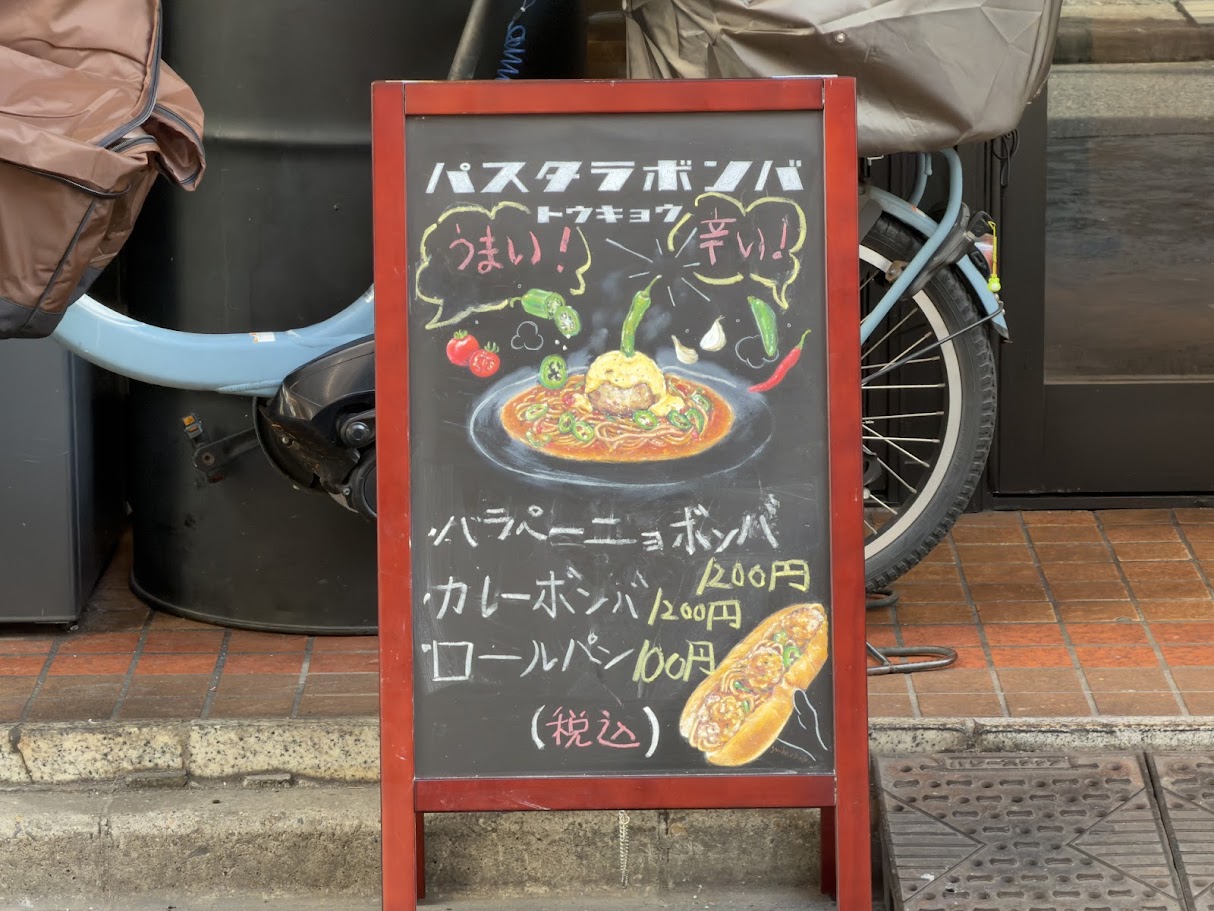 パスタラボンバ
トウキョウ
うまい！
辛い！
・ハラペーニョボンバ
1200円
・カレーボンバ 1200円
・ロールパン 100円
(税込)